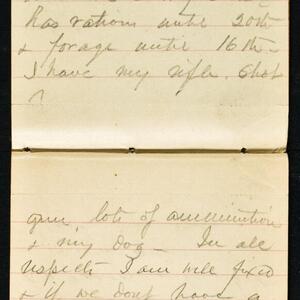 has rations until 20th
& forage until 16th -
I have my rifle. Shot
?
gun lots of ammunition
& my dog - In all
respects I am well fixed
& if we dont have a